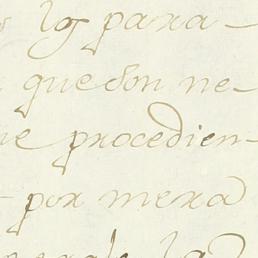 los para-
que son ne-
ue procedien-
por mera